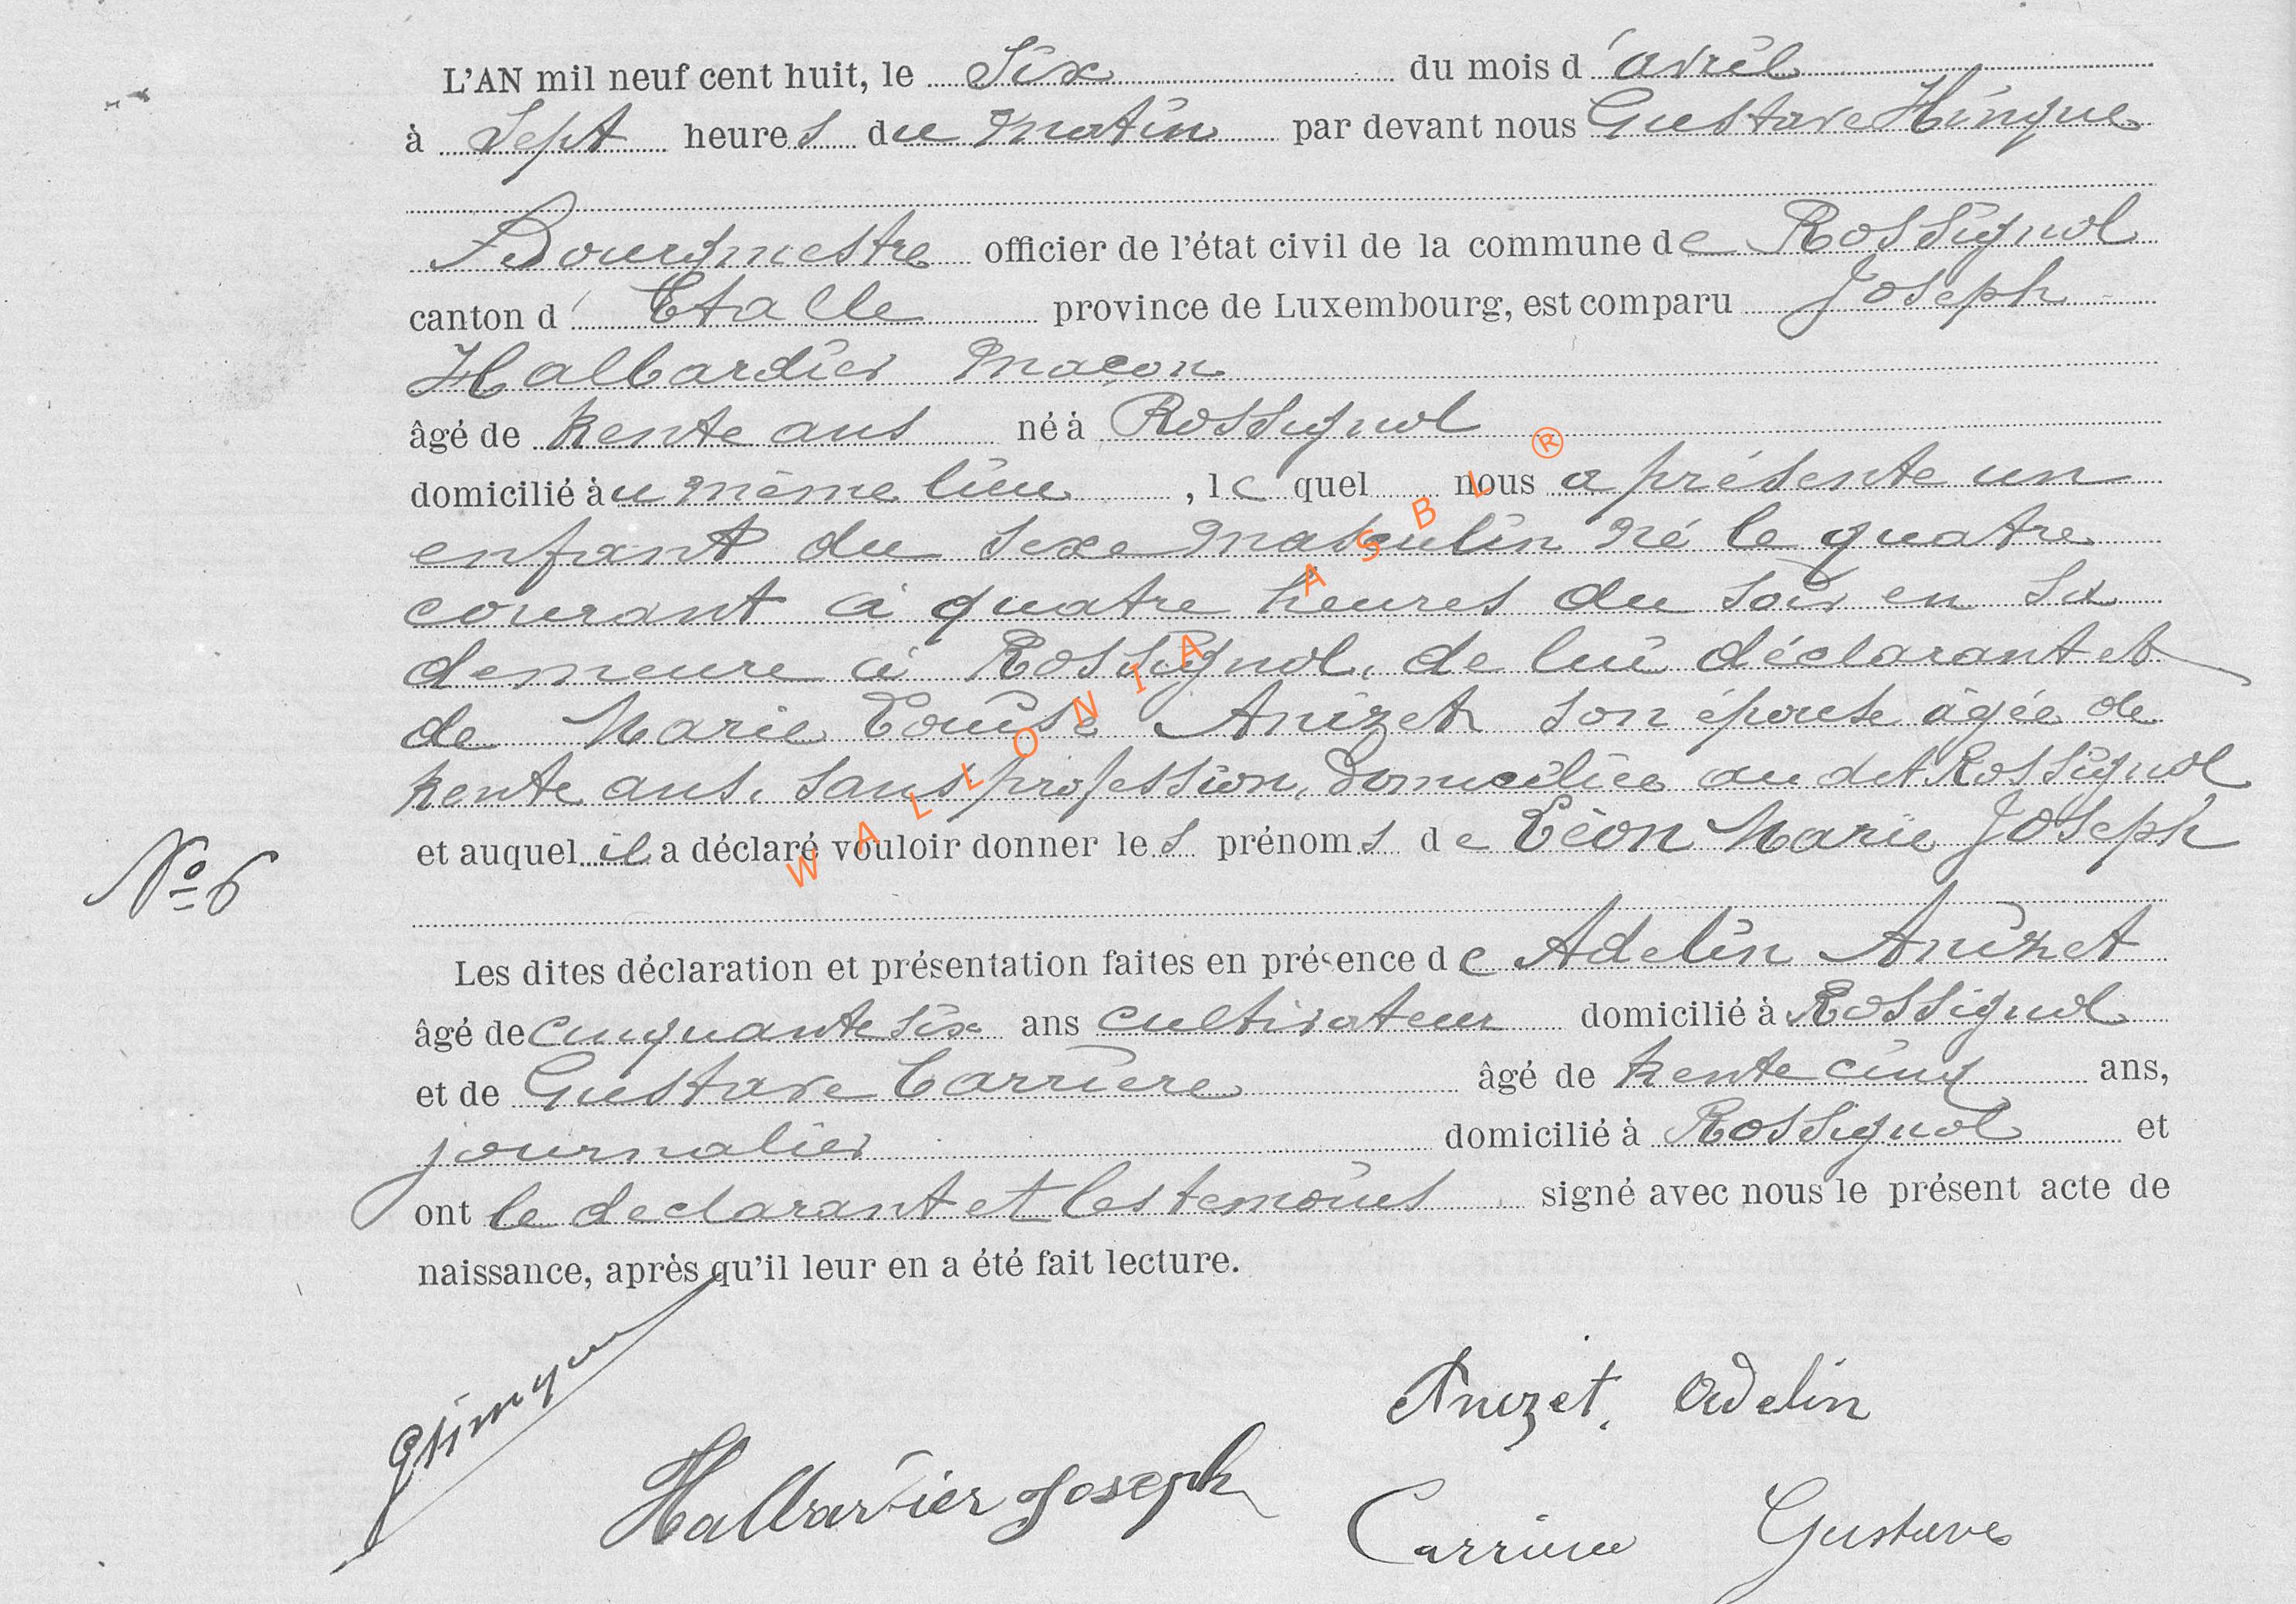 L'AN mil neuf cent huit, le Six du mois d'avril
à Sept heures du matin par devant nous Gustave Hinque
Bourgmestre officier de l'état civil de la commune de Rossignol
canton d'Etalle province de Luxembourg, est comparu Joseph
Halbardier maçon
âgé de trente ans né à Rossignol
domicilié au même lieu, lequel nous a présenté un
enfant du sexe masculin né le quatre
courant à quatre heures du soir en sa
demeure à Rossignol, de lui déclarant et
de Marie Louise Anizet son épouse âgée de
trente ans, sans profession, domiciliée au dit Rossignol
et auquel il a déclaré vouloir donner les prénoms de Léon Marie Joseph
N° 6
Les dites déclaration et présentation faites en présence de Adelin Anizet
âgé de cinquante six ans cultivateur domicilié à Rossignol
et de Gustave Carrière âgé de trente cinq ans,
journalier domicilié à Rossignol et
ont le declarant et les temoins signé avec nous le présent acte de
naissance, après qu'il leur en a été fait lecture.
GHinque
Anizet. Adelin
Halbardier Joseph
Carrière Gustave
WALLONIA ASBL ®